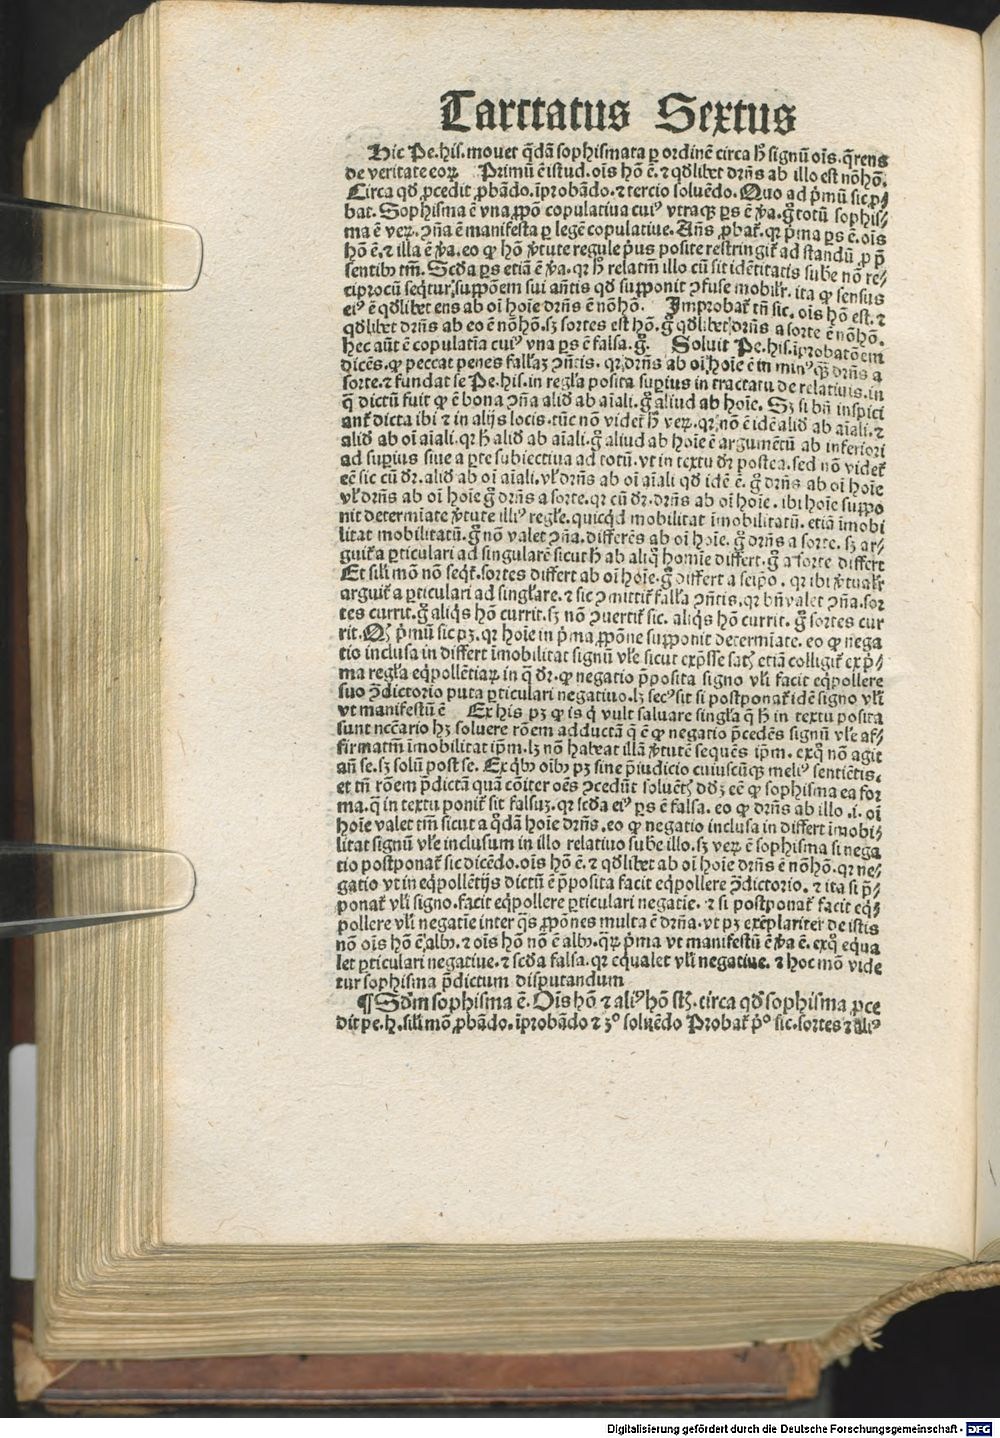 Tarctatus Sextus
Hic Pe.his. mouet q̄dā sophismata ꝑ ordinē circa hͦ signū oīs. q̄rens
de veritate eoꝝ Primū ē istud. oīs hō ē. ⁊ qđlibet dr̄ns ab illo est nō hō.
Circa qđ ꝓcedit ꝓbādo. īprobādo. ⁊ tercio soluēdo. Quo ad p̄mū sic ꝓ⸗
bat. Sophisma ē vna ꝓpō copulatiua cuiꝰ vtraqꝫ ꝑs ē ꝟa. gͦ totū sophis⸗
ma ē veꝝ. ꝯn̄a ē manifesta ꝑ legē copulatiue. Añs ꝓbat̄. qꝛ p̄ma ꝑs ē. oīs
hō ē. ⁊ illa ē ꝟa. eo ꝙ hō ꝟtute regule pͥus posite restringit̄ ad standū ꝓ p̄
sentibꝫ tm̄. Scđa ꝑs etiā ē ꝟa. qꝛ hͦ relatm̄ illo cū sit idētitatis sube nō re⸗
ciprocū seqͥtur suppōem sui añtis qđ supponit ꝯfuse mobilr̄. ita ꝙ sensus
eiꝰ ē qđlibet ens ab oī hoīe dr̄ns ē nō hō. Improbat̄ tn̄ sic. oīs hō est. ⁊
qđlibet dr̄ns ab eo ē nō hō. sꝫ sortes est hō. gͦ qđlibet dr̄ns a sorte ē nō hō.
hec aūt ē copulatīa cuiꝰ vna ꝑs ē falsa. gͦ. Soluit Pe.his. īprobatōem
dicēs. ꝙ peccat penes fallaꝫ ꝯn̄tis. qꝛ dr̄ns ab oī hoīe ē in minꝰ qꝫ dr̄ns a
sorte. ⁊ fundat se Pe.his. in regl̄a posita suꝑius in tractatu de relatiuis. in
q̄ dictū fuit ꝙ ē bona ꝯn̄a aliđ ab aīali. gͦ aliud ab hoīe. Sꝫ si bn̄ inspici
ant̄ dicta ibi ⁊ in alijs locis. tūc nō videt̄ hͦ veꝝ. qꝛ nō ē idē aliđ ab aīali. ⁊
aliđ ab oī aīali. qꝛ hͦ aliđ ab aīali. gͦ aliud ab hoīe ē argumētū ab inferiori
ad suꝑius siue a ꝑte subiectiua ad totū. vt in textu dr̄ postea. sed nō videt̄
eē sic cū dr̄. aliđ ab oī aīali. vl̄ dr̄ns ab oī aīali qđ idē ē. gͦ dr̄ns ab oī hoīe
vl̄ dr̄ns ab oī hoīe gͦ dr̄ns a sorte. qꝛ cū dr̄. dr̄ns ab oī hoīe. ibi hoīe suppo
nit determīate ꝟtute illiꝰ regl̄e. quicqͥd mobilitat īmobilitatū. etiā īmobi
litat mobilitatū. gͦ nō valet ꝯn̄a. differēs ab oī hoīe. gͦ dr̄ns a sorte. sꝫ ar⸗
guit̄ a ꝑticulari ad singularē sicut hͦ ab aliqͦ homīe differt. gͦ a sorte differt
Et sil̄i mō nō seqͥt̄. sortes differt ab oī hoīe. gͦ differt a seip̄o. qꝛ ibi ꝟtualr̄
arguit̄ a ꝑticulari ad singl̄are. ⁊ sic ꝯmittit̄ fall̄a ꝯn̄tis. qꝛ bn̄ valet ꝯn̄a. sor
tes currit. gͦ aliqͥs hō currit. sꝫ nō ꝯuertit̄ sic. aliqͥs hō currit. gͦ sortes cur
rit. Qꝫ p̄mū sic pꝫ. qꝛ hoīe in p̄ma ꝓpōne supponit determīate. eo ꝙ nega
tio inclusa in differt īmobilitat signū vl̄e sicut exp̄sse satꝭ etiā colligit̄ ex p̄⸗
ma regl̄a eqͥpollētiaꝝ in q̄ dr̄. ꝙ negatio p̄posita signo vl̄i facit eqͥpollere
suo ꝯ̄dictorio puta ꝑticulari negatiuo. lꝫ secꝰ sit si postponat̄ idē signo vl̄i
vt manifestū ē Ex his pꝫ ꝙ is qͥ vult saluare singl̄a q̄ hͦ in textu posita
sunt nccārio hꝫ soluere rōem adductā q̄ ē ꝙ negatio p̄cedēs signū vl̄e af⸗
firmatm̄ īmobilitat ip̄m. lꝫ nō habeat illā ꝟtutē sequēs ip̄m. ex qͦ nō agit
an̄ se. sꝫ solū post se. Ex qͥbꝫ oībꝫ pꝫ sine p̄iudicio cuiuscūqꝫ meliꝰ sentiētis.
et tn̄ rōem p̄dictā quā cōiter oēs ꝯcedūt soluētꝭ đđꝫ eē ꝙ sophisma ea for
ma. q̄ in textu ponit̄ sit falsuꝫ. qꝛ scđa eiꝰ ꝑs ē falsa. eo ꝙ dr̄ns ab illo .i. oī
hoīe valet tm̄ sicut a qͦdā hoīe dr̄ns. eo ꝙ negatio inclusa in differt īmobi⸗
litat signū vl̄e inclusum in illo relatiuo sube illo. sꝫ veꝝ ē sophisma si nega
tio postponat̄ sic dicēdo. oīs hō ē. ⁊ qđlibet ab oī hoīe dr̄ns ē nō hō. qꝛ ne⸗
gatio vt in eqͥpollētijs dictū ē p̄posita facit eqͥpollere ꝯ̄dictorio. ⁊ ita si p̄⸗
ponat̄ vl̄i signo. facit eqͥpollere ꝑticulari negatie. ⁊ si postponat̄ facit eqͥ⸗
pollere vl̄i negatīe inter q̄s ꝓpōnes multa ē dr̄na. vt pꝫ exēplariter de istis
nō oīs hō ē albꝰ. ⁊ oīs hō nō ē albꝰ. qꝛ p̄ma vt manifestū ē ꝟa ē. ex qͦ equa
let ꝑticulari negatiue. ⁊ scđa falsa. qꝛ equalet vl̄i negatiue. ⁊ hoc mō vide
tur sophisma p̄dictum disputandum
¶ Sđm sophisma ē. Oīs hō ⁊ aliꝰ hō st̄. circa qđ sophisma ꝓce
dit pe.h. sil̄i mō ꝓbādo. īprobādo ⁊ 3ͦ soluēdo Probat̄ pͦ sic. sortes ⁊ aliꝰ
Digitalisierung gefördert durch die Deutsche Forschungsgemeinschaft - DFG